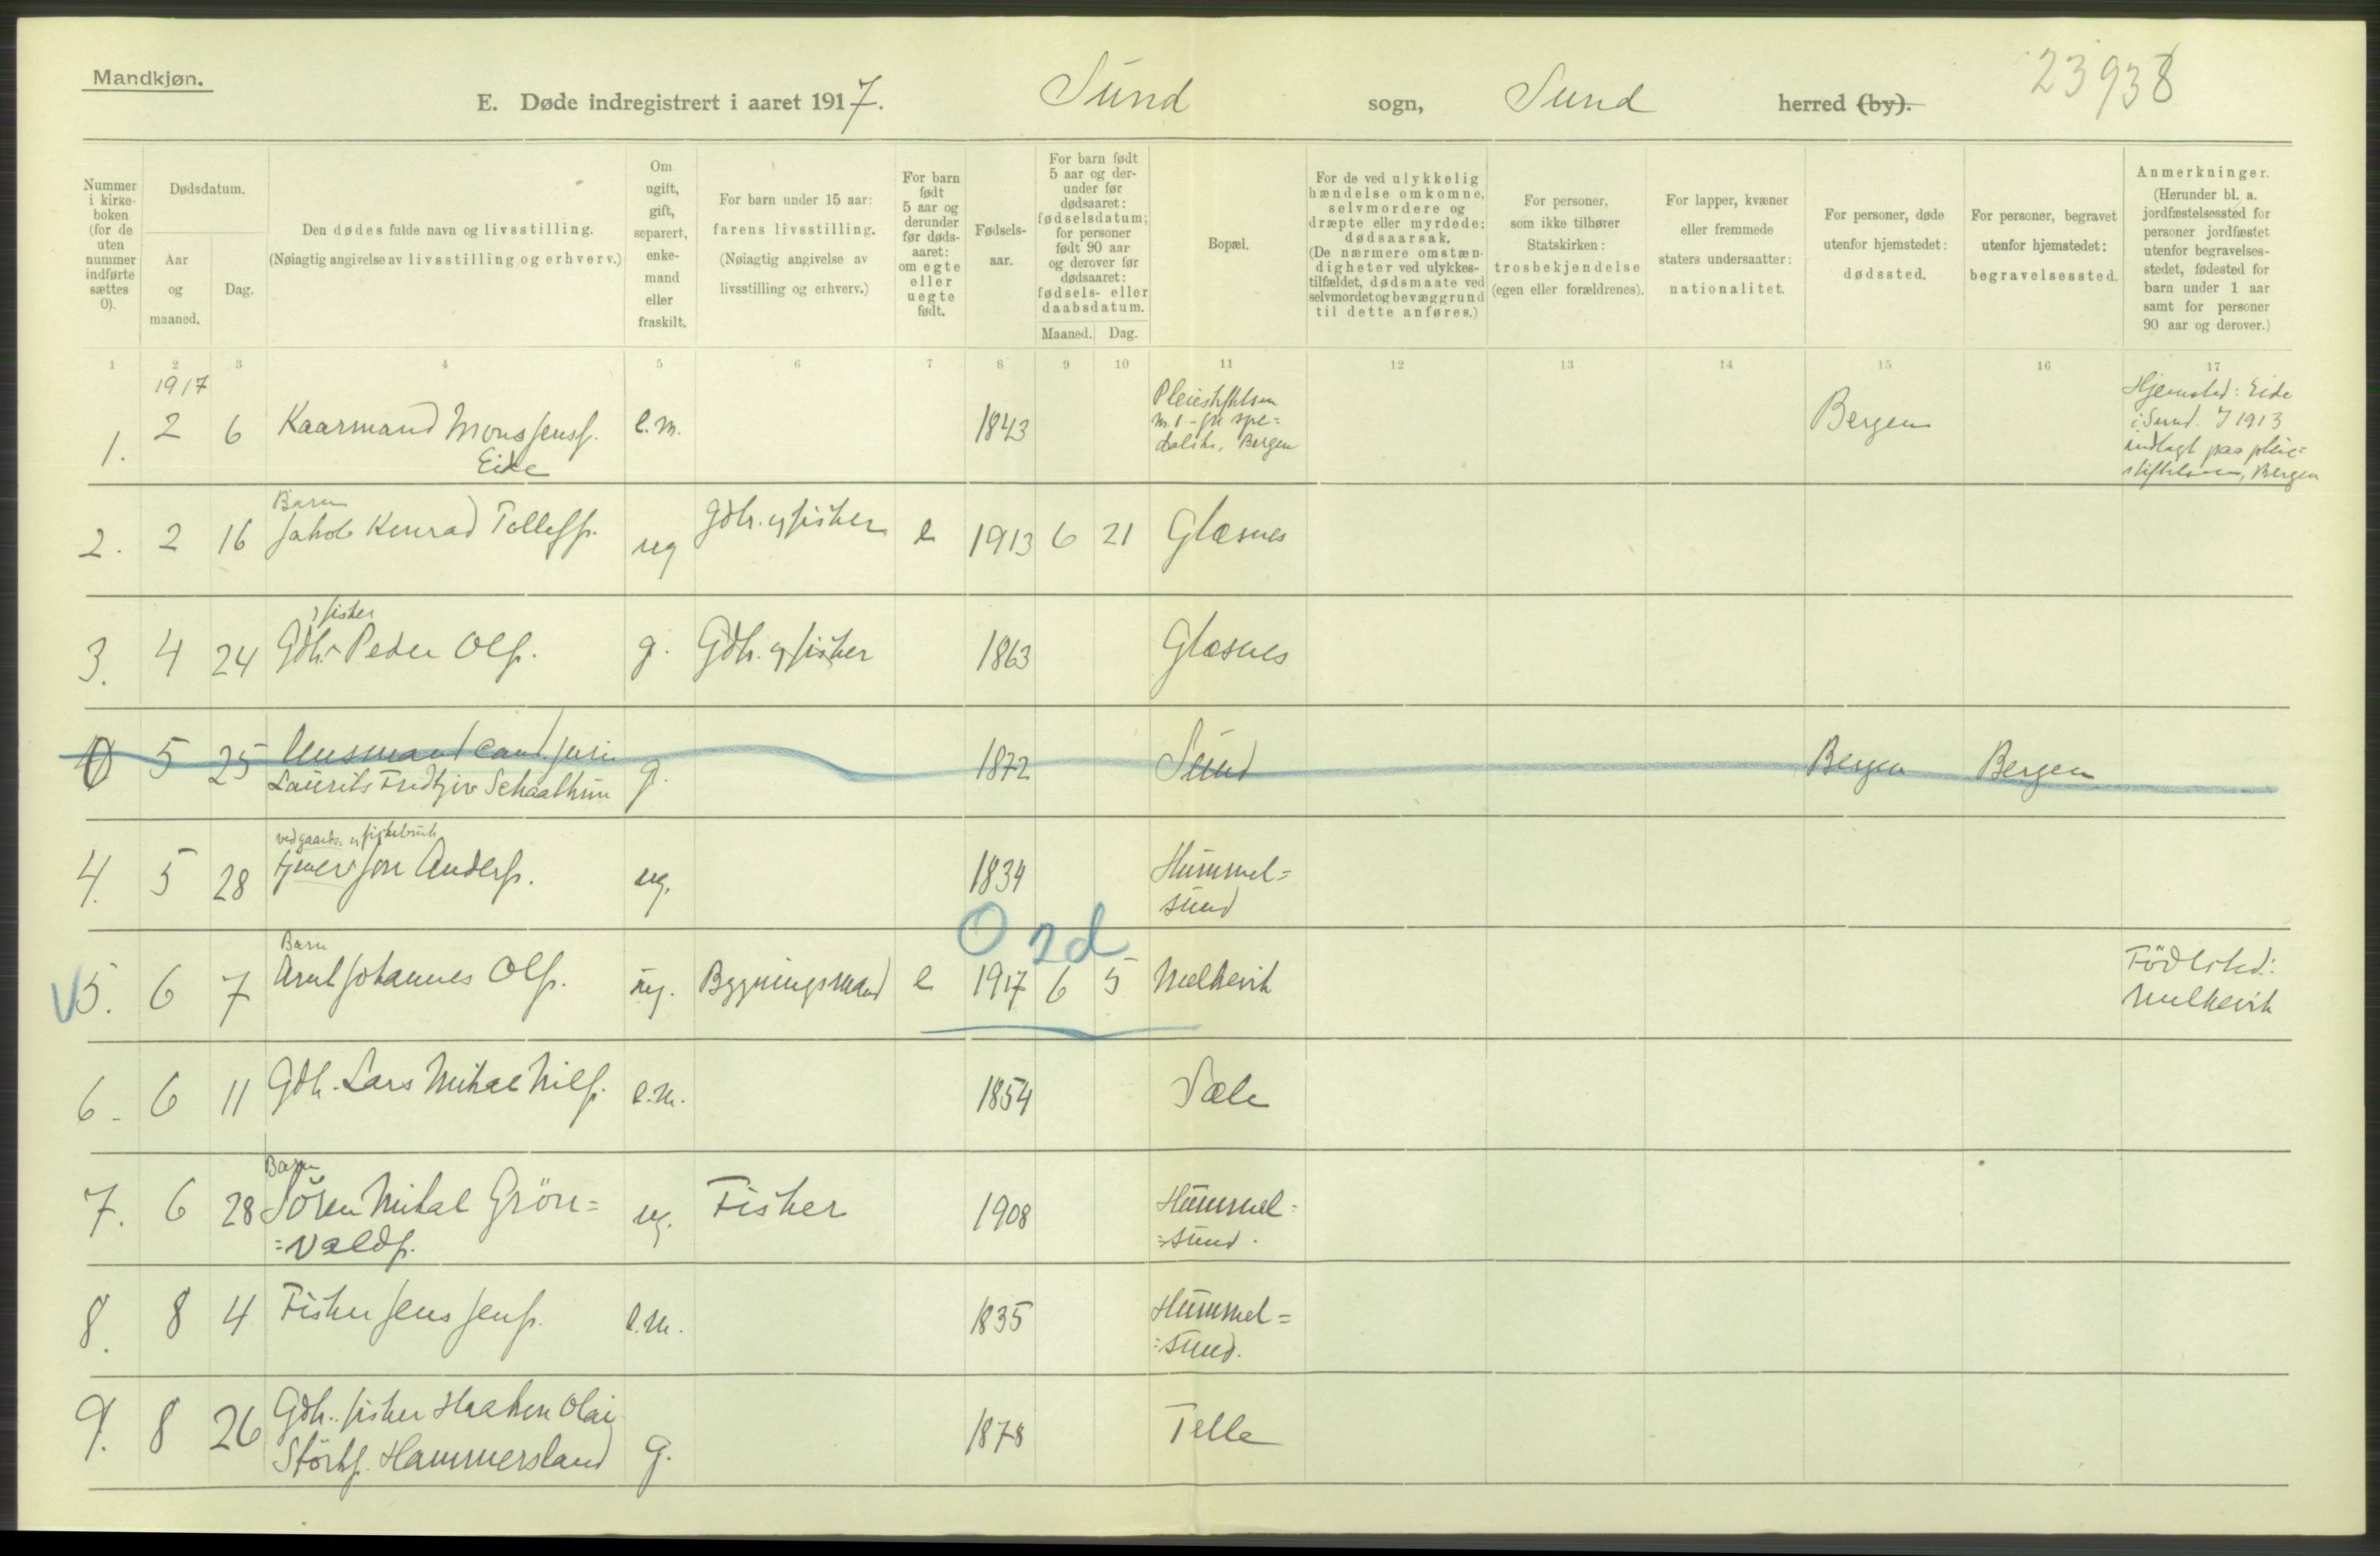 Mandkjøn.
E. Døde indregistrert i aaret 1917. Sund sogn, Sund herred (by).
23938
Nummer i kirkeboken (for de uten nummer indførte sættes 0).
Dødsdatum.
Aar og maaned.
Dag.
Den dødes fulde navn og livsstilling.
(Nøiagtig angivelse av livsstilling og erhverv.)
Om ugift, gift, separert, enkemand eller fraskilt.
For barn under 15 aar: farens livsstilling.
(Nøiagtig angivelse av livsstilling og erhverv.)
For barn født 5 aar og derunder før dødsaaret: om egte eller uegte født.
Fødselsaar.
For barn født 5 aar og derunder før dødsaaret: fødselsdatum; for personer født 90 aar og derover før dødsaaret: fødsels- eller daabsdatum.
Maaned. Dag.
Bopæl.
For de ved ulykkelig hændelse omkomne, selvmordere og dræpte eller myrdede: dødsaarsak.
(De nærmere omstændigheter ved ulykkestilfældet, dødsmaate ved selvmordet og bevæggrund til dette anføres.)
For personer, som ikke tilhører Statskirken: trosbekjendelse (egen eller forældrenes).
For lapper, kvæner eller fremmede staters undersaatter: nationalitet.
For personer, døde utenfor hjemstedet: dødssted.
For personer, begravet utenfor hjemstedet: begravelsessted.
Anmerkninger.
(Herunder bl. a. jordfæstelsessted for personer jordfæstet utenfor begravelsesstedet, fødested for barn under 1 aar samt for personer 90 aar og derover.)
1 2 3 4 5 6 7 8 9 10 11 12 13 14 15 16 17
1917
1. 2 6 Kaarmand Mons Jenss. Eide e.m. 1843 Pleiestiftelsen m. 1 for spedalske, Bergen Bergen Hjemsted: Eide i Sund. I 1913 indlagt paa pleiestiftelsen, Bergen
2. 2 16 Barn Jakob Konrad Tollefs. ug Gdbr. og fisker e 1913 6 21 Glæsnes
3. 4 24 Gdbr. fisker Peder Ols. g. Gdbr. og fisker 1863 Glæsnes
0 5 25 Lensmand cand. juris Laurits Fridtjov Schaathun g. 1872 Sund Bergen Bergen
4. 5 28 ved gaards- og fiskebruk Jon Anders. ug. 1834 Hummelsund
O 2d
5. 6 7 Barn Arnt Johannes Ols. ug. Bygningsmand e 1917 6 5 Melkevik Födested: Melkevik
6. 6 11 Gdb. Lars Mikal Nils. e.m. 1854 Sæle
7. 6 28 Barn Sören Mikal Grön=
=valds. ug. Fisker 1908 Hummel=
=sund.
8. 8 4 Fisker Jens Jens. e.m. 1835 Hummel=
=sund.
9. 8 26 Gdb. fisker Haaken Olai
Störks. Hammersland g. 1878 Telle